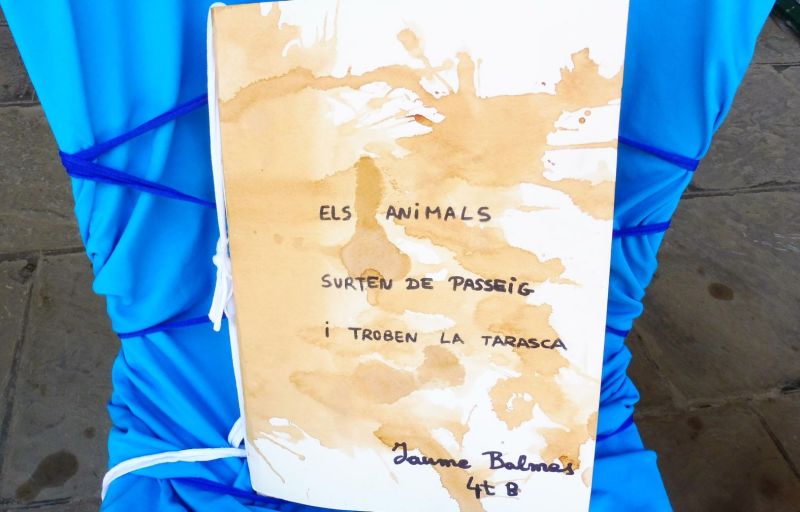 ELS ANiMALS
SURTEN DE PASSEiG
i TROBEN LA TARASCA
Jaume Balmes
4t B